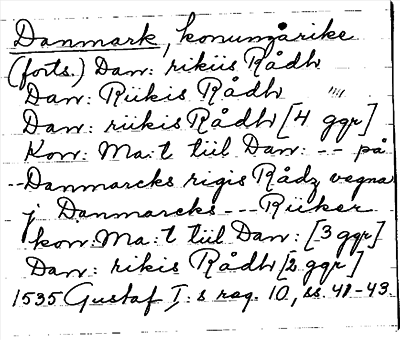 Danmark, konungarike
(forts.) Dan: rikiis Rådh
Dan: Riikis Rådh ""
Dan: riikis Rådh [4 ggr]
Kon: Ma:t tiil Dan: -- på
--Danmarcks rigis Rådz vegna
j Danmarcks --- Riiker
kon: Ma:t tiil Dan: [3 ggr]
Dan: rikis Rådh [2 ggr]
1535 Gustaf I:s reg. 10, ss. 41-43.